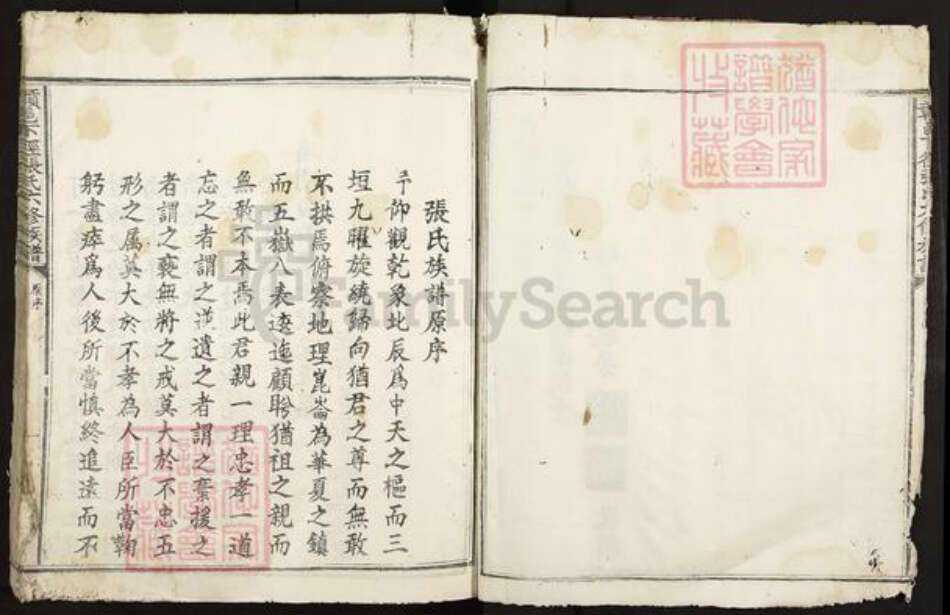 張氏族譜原序
予仰觀乾象北辰爲中天之樞而三
垣九曜旋繞歸向猶君之尊而無敢
不拱焉俯察地理崑崙為華夏之鎮
而五嶽八表逶迤顧盻猶祖之親而
無敢不本焉此君親一理忠孝一道
忘之者謂之逆遺之者謂之棄援之
者謂之褻無將之戒莫大於不忠五
形之属莫大於不孝為人臣所當鞠
躬盡瘁爲人後所當慎終追遠而不
張氏六修族譜
原序
譜學會
收藏
FamilySearch